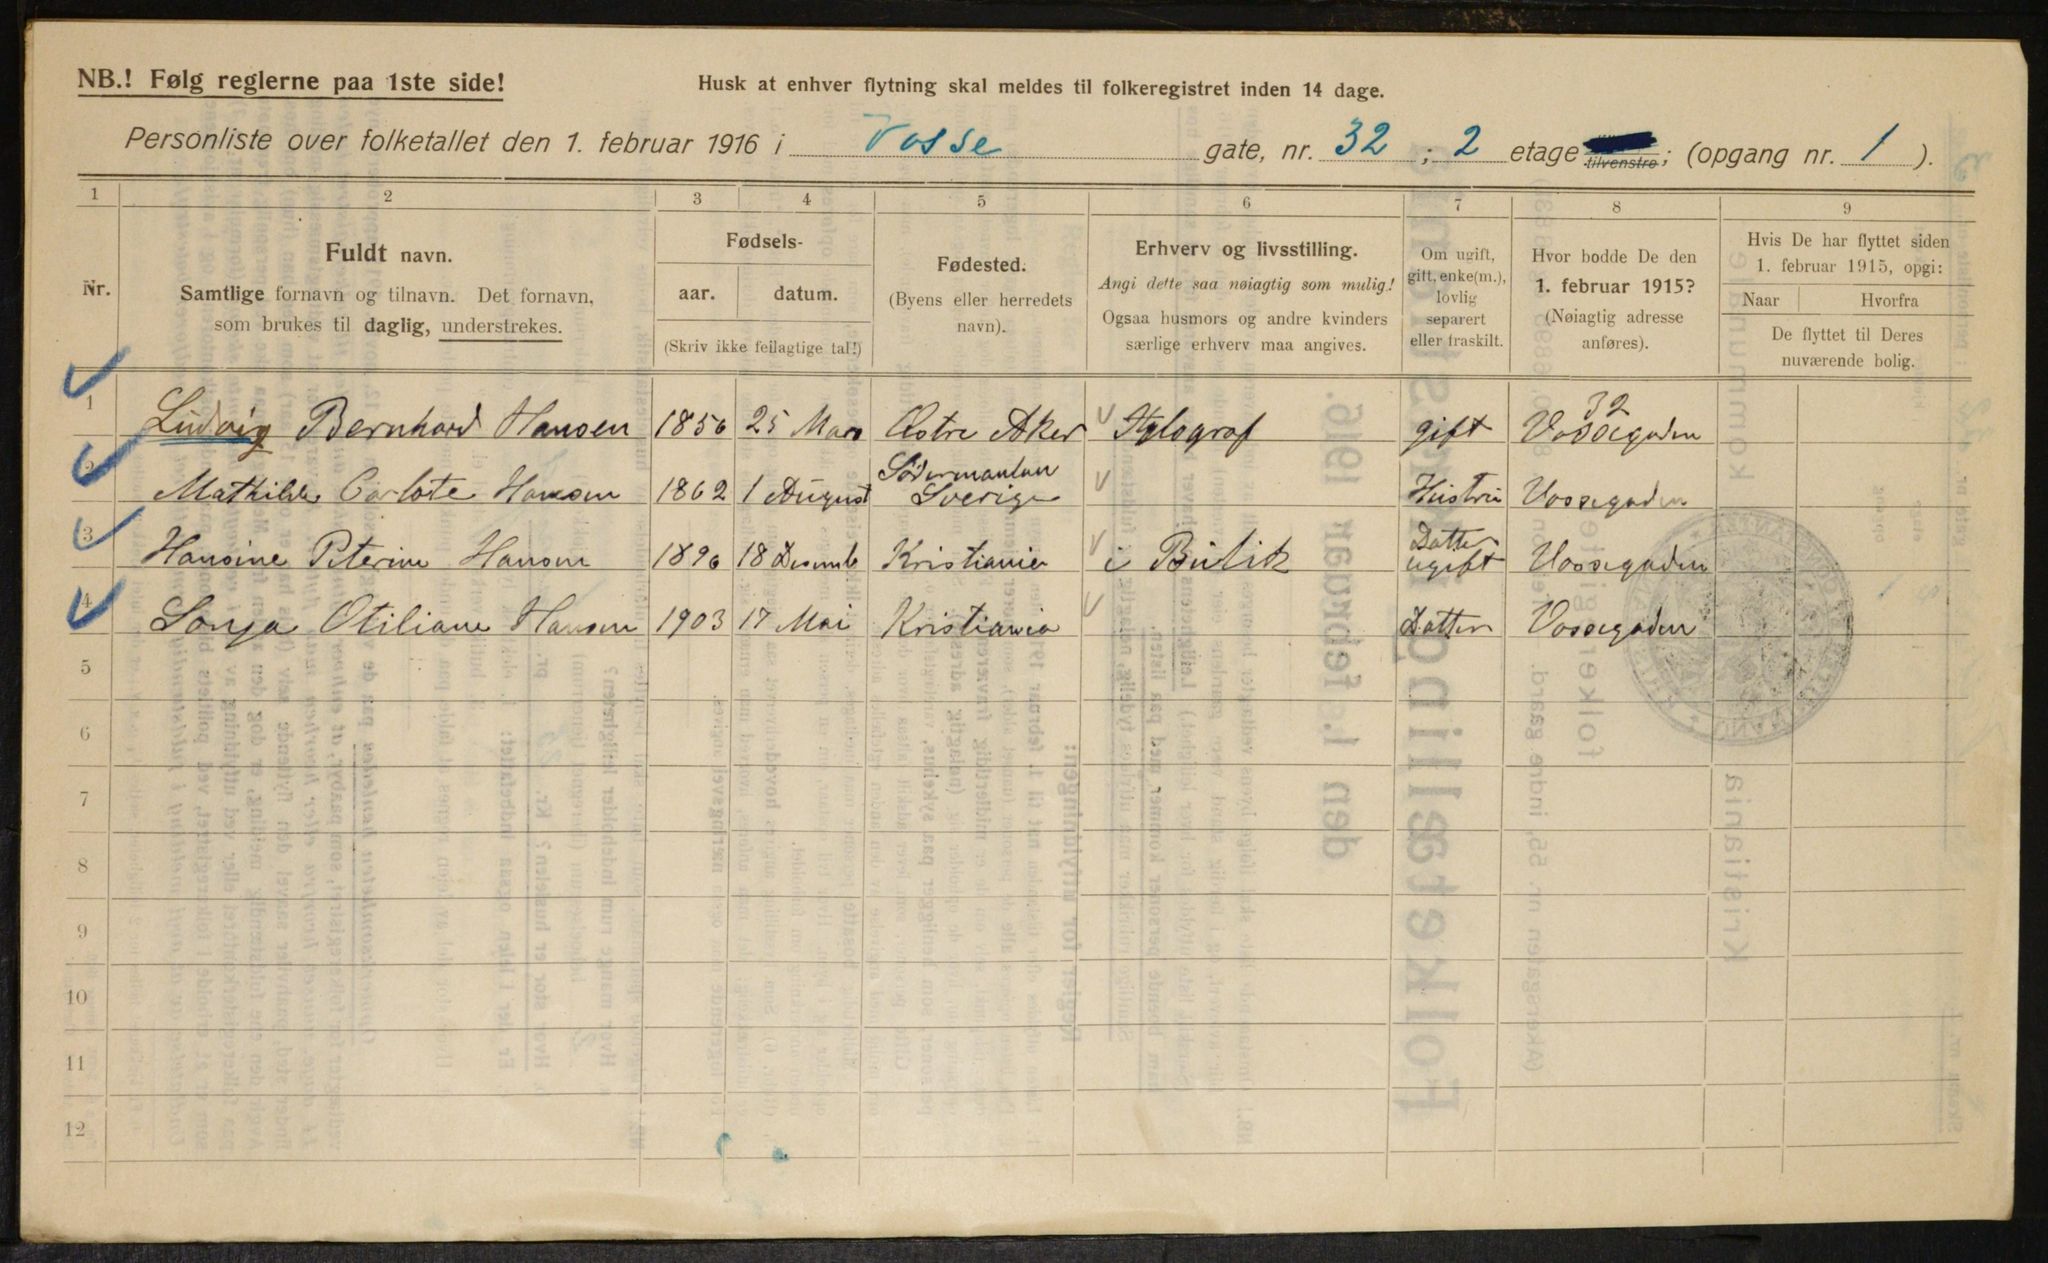 NB.! Følg reglerne paa 1ste side!
Husk at enhver flytning skal meldes til folkeregistret inden 14 dage.
Personliste over folketallet den 1. februar 1916 i Vosse gate, nr. 32 ; 2 etage tilvenstre; (opgang nr. 1 ).
1 2 3 4 5 6 7 8 9
Nr.
Fuldt navn.
Samtlige fornavn og tilnavn. Det fornavn,
som brukes til daglig, understrekes.
Fødsels-
aar. datum.
(Skriv ikke feilagtige tal!)
Fødested.
(Byens eller herredets
navn).
Erhverv og livsstilling.
Angi dette saa nøiagtig som mulig!
Ogsaa husmors og andre kvinders
særlige erhverv maa angives.
Om ugift,
gift, enke(m.),
lovlig
separert
eller fraskilt.
Hvor bodde De den
1. februar 1915?
(Nøiagtig adresse
anføres).
Hvis De har flyttet siden
1. februar 1915, opgi:
Naar Hvorfra
De flyttet til Deres
nuværende bolig.
1 Ludvig Bernhard Hansen 1856 25 Mars Østre Aker Xylograf gift Vossegaden 32
2 Mathilde Carlote Hansen 1862 1 August Södermanlan Sverige Hustru Vossegaden
3 Hansine Peterine Hansen 1896 18 Desemb Kristiania i Butik Datter ugift Vossegaden
4 Sonja Otiliane Hansen 1903 17 Mai Kristiania Datter Vossegaden
5
6
7
8
9
10
11
12